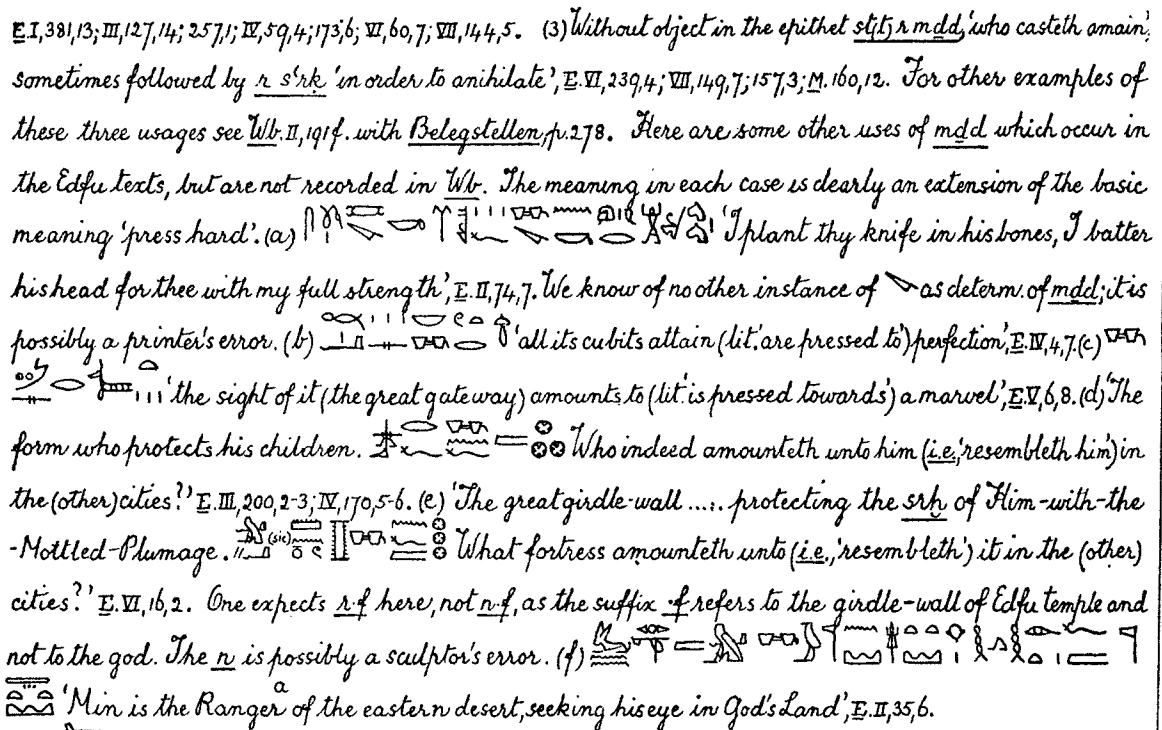 E.I,381,13; III,127,14; 257,1; IV,59,4; 173,6; VI,60,7; VII,144,5. (3) Without object in the epithet stı͗tı͗ r mdd, 'who casteth amain',
sometimes followed by r sʿrḳ 'in order to anihilate', E.VI,239,4; VII,149,7; 157,3; M.160,12. For other examples of
these three usages see Wb.II,191f. with Belegstellen, p.278. Here are some other uses of mdd which occur in
the Edfu texts, but are not recorded in Wb. The meaning in each case is clearly an extension of the basic
meaning 'press hard'. (a) 'I plant thy knife in his bones, I batter
his head for thee with my full strength', E.II,74,7. We know of no other instance of as determ. of mdd; it is
possibly a printer's error. (b) 'all its cubits attain (lit. 'are pressed to') perfection', E.IV,4,7. (c)
'the sight of it (the great gateway) amounts to (lit. 'is pressed towards') a marvel', E.V,6,8. (d) 'The
form who protects his children. Who indeed amounteth unto him (i.e. 'resembleth him') in
the (other) cities?' E.III,200,2-3; IV,170,5-6. (e) 'The great girdle-wall ..... protecting the srḫ of Him-with-the
-Mottled-Plumage. (sic) What fortress amounteth unto (i.e., 'resembleth') it in the (other)
cities?' E.VI,16,2. One expects r·f here, not n·f, as the suffix ·f refers to the girdle-wall of Edfu temple and
not to the god. The n is possibly a sculptor's error. (f)
'Min is the Ranger a of the eastern desert, seeking his eye in God's Land', E.II,35,6.